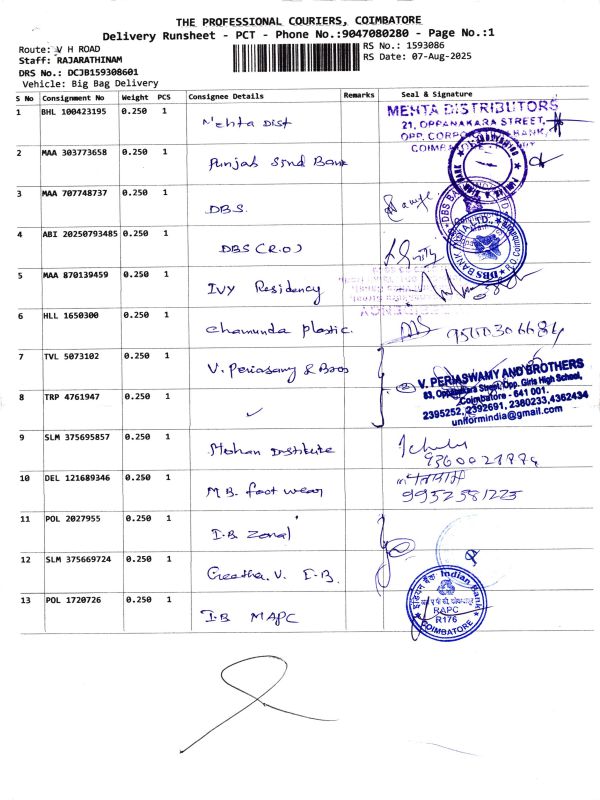 THE PROFESSIONAL COURIERS, COIMBATORE
Delivery Runsheet - PCT - Phone No.:9047080280 - Page No.:1
Route: V H ROAD
RS No.: 1593086
Staff: RAJARATHINAM
RS Date: 07-Aug-2025
DRS No.: DCJB159308601
Vehicle: Big Bag Delivery
S No Consignment No Weight PCS Consignee Details Remarks Seal & Signature
1 BHL 100423195 0.250 1 Mehta Dist
MEHTA DISTRIBUTORS
21, OPPANAKARA STREET,
2 MAA 303773658 0.250 1 Punjab Sind Bank
3 MAA 707748737 0.250 1 DBS
4 ABI 20250793485 0.250 1 DBS (R.O)
DBS BANK
5 MAA 870139459 0.250 1 Ivy Residency
6 HLL 1650300 0.250 1 Chamunda Plastic.
7 TVL 5073102 0.250 1 V. Periasamy & Bros
V. PERIASWAMY AND BROTHERS
83, Oppanakara Street, Opp. Girls High School,
Coimbatore - 641 001.
2395252, 2392691, 2380233, 4362434
uniformindia@gmail.com
8 TRP 4761947 0.250 1
9 SLM 375695857 0.250 1 Mohan
10 DEL 121689346 0.250 1 M B. foot wear
11 POL 2027955 0.250 1 I.B Zonal
12 SLM 375669724 0.250 1 Geetha. V. I.B.
13 POL 1720726 0.250 1 I.B MAPC
इंडियन बैंक Indian Bank
RAPC
R176
COIMBATORE